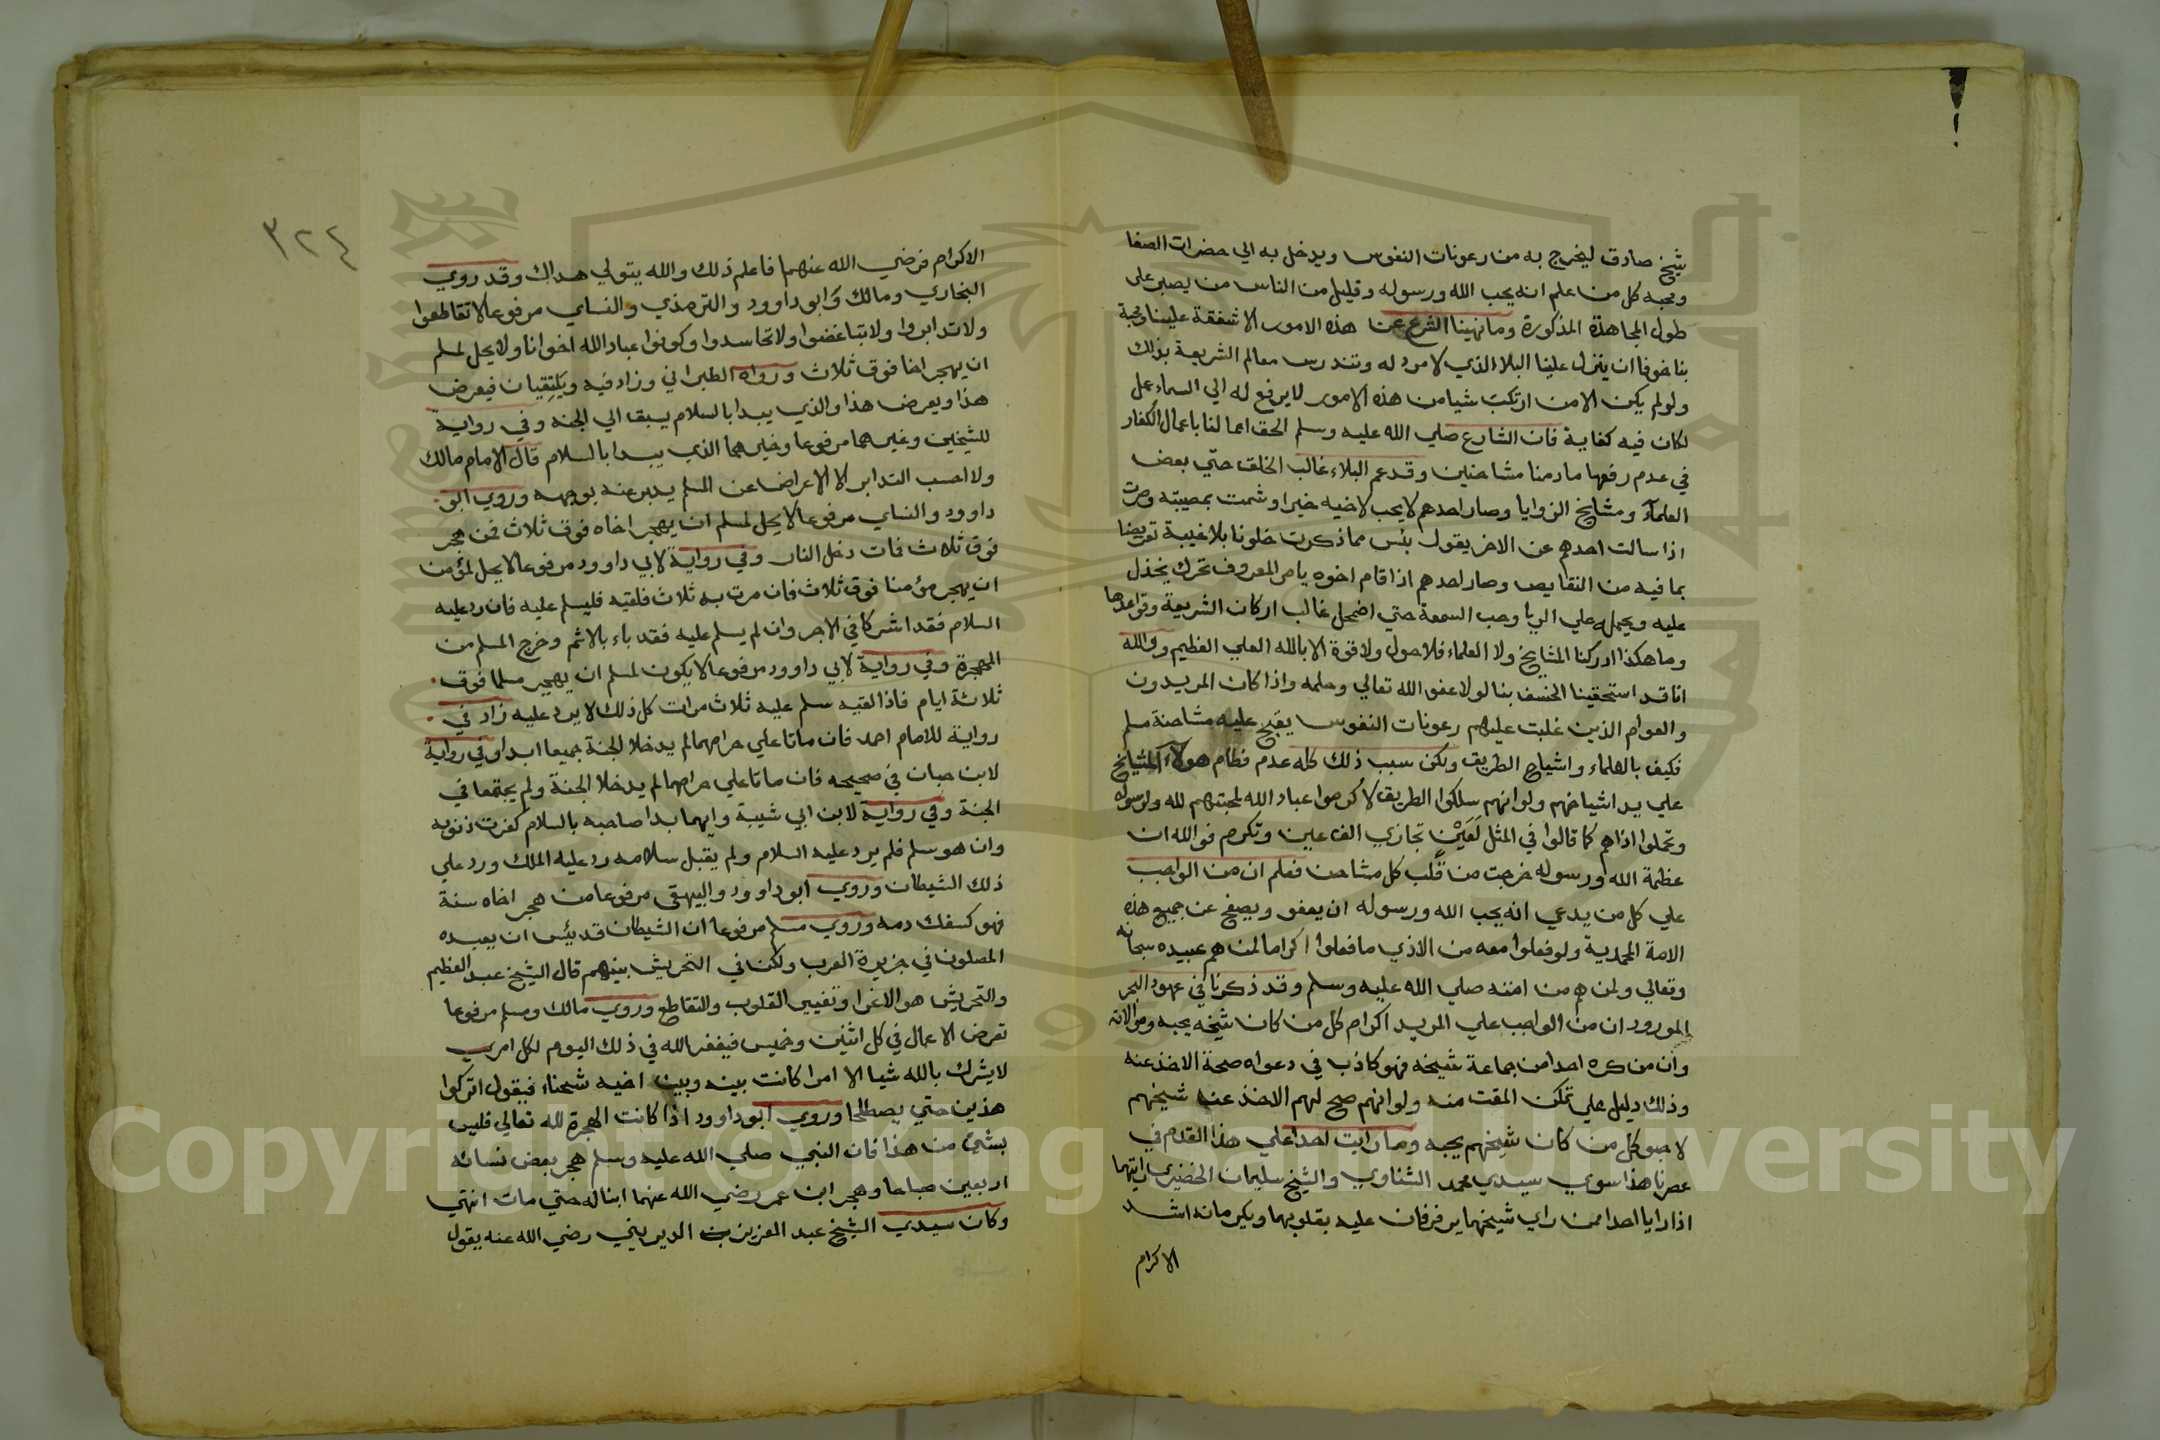 شيخ صادق ليخرج به من رعونات النفوس ويدخل به الي حضرات الصفا
ومحبه كل من علم انه يحب الله ورسوله وقليل من الناس من يصبر على
طول المجاهدة المذكورة وما نهينا الشرع عن هذه الامور الا شفقة علينا ومحبة
بنا خوفا ان ينزل علينا البلاء الذي لا مرد له وتندرس معالم الشريعة بذلك
ولو لم يكن الا من ارتكب شيا من هذه الامور لا يرفع له الي السماء عمل
لكان فيه كفاية فان الشارع صلي الله عليه وسلم الحق اعمالنا باعمال الكفار
في عدم رفعها ما دمنا مشاحنين وقد عم البلاء غالب الخلق حتي بعض
العلماء ومشايخ الزوايا وصار احدهم لا يحب لاخيه خيرا وشمت بمصيبته وصرت
اذا سالت احدهم عن الاخر يقول بئس مما ذكرت خلونا بلا غيبة تعريضا
بما فيه من النقايص وصار احدهم اذا قام اخوه يامر بالمعروف تحرك يخذل
عليه ويحمله علي الريا وحب السمعة حتي اضمحل غالب اركان الشريعة وقواعدها
وما هكذا ادركنا المشايخ ولا العلماء فلا حول ولا قوة الا بالله العلي العظيم ووالله
انا قد استحقينا الخسف بنا لولا عفو الله تعالي وحلمه واذا كان المريدون
والعوام الذين غلبت عليهم رعونات النفوس يقبح عليه مشاحنة مسلم
فكيف بالعلماء واشياخ الطريق ولكن سبب ذلك كله عدم فطام هولاء المشايخ
علي يد اشياخهم ولو انهم سلكوا الطريق لاكرموا عباد الله لمحبتهم لله ولرسوله
وتحملوا اذاهم كما قالوا في المثل لعين تجازي الف عين وتكرم فوالله ان
عظمة الله ورسوله خرجت من قلب كل مشاحن فعلم ان من الواجب
علي كل من يدعي انه يحب الله ورسوله ان يعفو ويصفح عن جميع هذه
الامة المحمدية ولو فعلوا معه من الاذي ما فعلوا اكراما لمن هم عبيده سبحانه
وتعالي ولمن هم من امته صلي الله عليه وسلم وقد ذكرنا في عهود البحر
المورود ان من الواجب علي المريد اكرام كل من كان شيخه يحبه وموالاته
وان من كره احدا من جماعة شيخه فهو كاذب في دعواه صحة الاخذ عنه
وذلك دليل علي تمكن المقت منه ولو انهم صح لهم الاخذ عنه شيخهم
لاحبوا كل من كان شيخهم يحبه وما رايت احدا علي هذا القدم في
عصرنا هذا سوي سيدي محمد الشناوي والشيخ سليمان الخضيري رايتهما
اذا رايا احدا ممن راي شيخهما يرفرفان عليه بقلوبهما ويكرمانه اشد
الاكرام
٣٢٤
الاكرام فرضي الله عنهما فاعلم ذلك والله يتولي هداك وقد روي
البخاري ومالك وابو داوود والترمذي والنساي مرفوعا لا تقاطعوا
ولا تدابروا ولا تباغضوا ولا تحاسدوا وكونوا عباد الله اخوانا ولا يحل لمسلم
ان يهجر اخا فوق ثلاث ورواه الطبراني وزاد فيه ويلتقيان فيعرض
هذا ويعرض هذا والذي يبدا بالسلام يسبق الي الجنه وفي رواية
للشيخين وغيرهما مرفوعا وخيرهما الذي يبدا بالسلام قال الامام مالك
ولا احسب التدابر الا الاعراض عن المسلم يدبر عنه بوجهه وروي ابو
داوود والنساي مرفوعا لا يحل لمسلم ان يهجر اخاه فوق ثلاث فمن هجر
فوق ثلاث فمات دخل النار وفي رواية لابي داوود مرفوعا لا يحل لمؤمن
ان يهجر مؤمنا فوق ثلاث فان مرت به ثلاث فلقيه فليسلم عليه فان رد عليه
السلام فقد اشتركا في الاجر وان لم يسلم عليه فقد باء بالاثم وخرج المسلم من
الهجرة وفي رواية لابي داوود مرفوعا لا يكون لمسلم ان يهجر مسلما فوق
ثلاثة ايام فاذا لقيه سلم عليه ثلاث مرات كل ذلك لا يرد عليه زاد في
رواية للامام احمد فان ماتا علي صرامهما لم يدخلا الجنة جميعا ابدا وفي رواية
لابن حبان في صحيحه فان ماتا علي صرامهما لم يدخلا الجنة ولم يجتمعا في
الجنة وفي رواية لابن ابي شيبة وايهما بدا صاحبه بالسلام كفرت ذنوبه
وان هو سلم فلم يرد عليه السلام ولم يقبل سلامه رد عليه الملك ورد علي
ذلك الشيطان وروي ابو داوود والبيهقي مرفوعا من هجر اخاه سنة
فهو كسفك دمه وروي مسلم مرفوعا ان الشيطان قد يئس ان يعبده
المصلون في جزيرة العرب ولكن في التحريش بينهم قال الشيخ عبد العظيم
والتحريش هو الاغرا وتغيير القلوب والتقاطع وروي مالك ومسلم مرفوعا
تعرض الاعمال في كل اثنين وخميس فيغفر الله في ذلك اليوم لكل امرى
لا يشرك بالله شيا الا امرا كانت بينه وبين اخيه شحناء فيقول اتركوا
هذين حتي يصطلحا وروي ابو داوود اذا كانت الهجرة لله تعالي فليس
بشئ من هذا فان النبي صلي الله عليه وسلم هجر بعض نسائه
اربعين صباحا وهجر ابن عمر رضي الله عنهما ابنا له حتي مات انتهي
وكان سيدي الشيخ عبد العزيز الديريني رضي الله عنه يقول
Copyright © King University